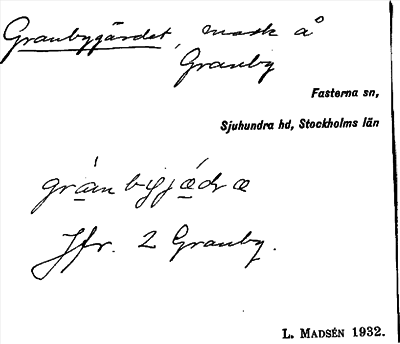 Granbygärdet, mark å
Granby
Fasterna sn,
Sjuhundra hd, Stockholms län
grán byjǽdræ
Jfr. 2 Granby.
L. MADSÉN 1932.